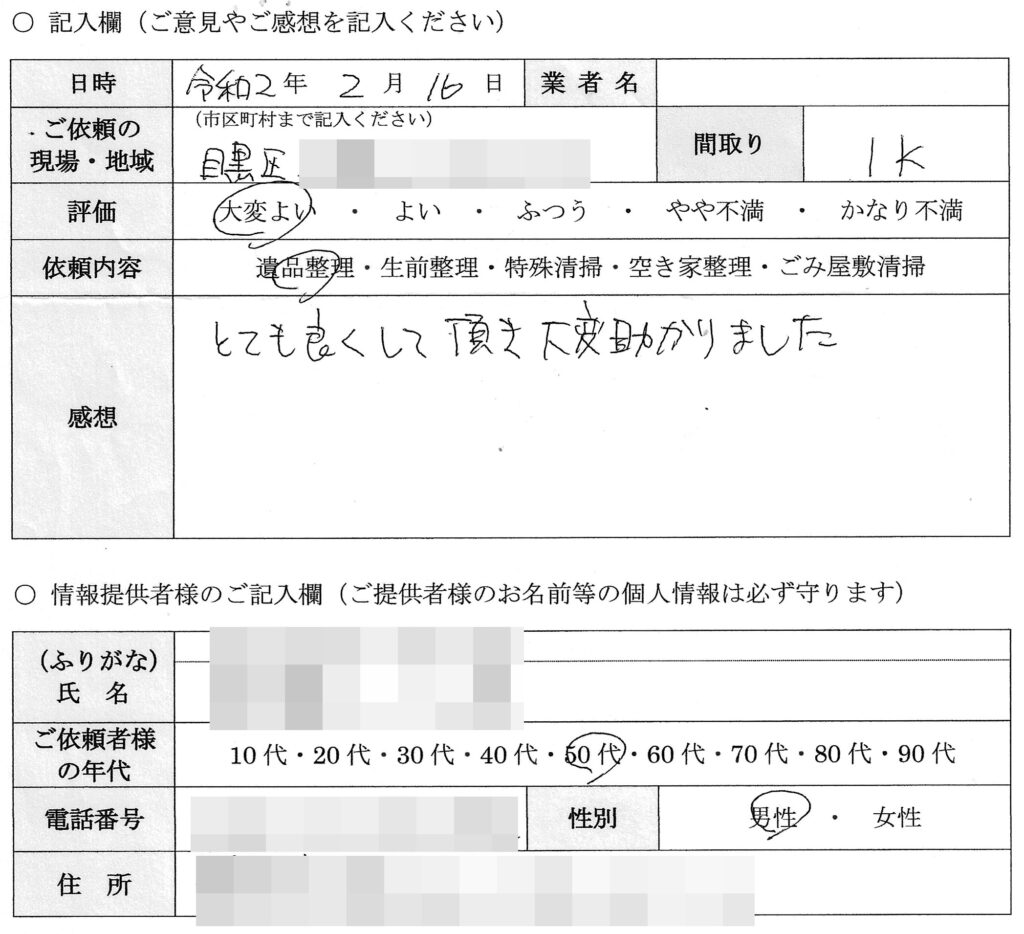 ○ 記入欄（ご意見やご感想を記入ください）
日時 令和2年 2月 16日 業者名
ご依頼の現場・地域 （市区町村まで記入ください） 目黒区 間取り 1K
評価 大変よい ・ よい ・ ふつう ・ やや不満 ・ かなり不満
依頼内容 遺品整理・生前整理・特殊清掃・空き家整理・ごみ屋敷清掃
感想 とても良くして頂き大変助かりました
○ 情報提供者様のご記入欄（ご提供者様のお名前等の個人情報は必ず守ります）
（ふりがな）
氏 名
ご依頼者様の年代 10代・20代・30代・40代・50代・60代・70代・80代・90代
電話番号 性別 男性 ・ 女性
住 所